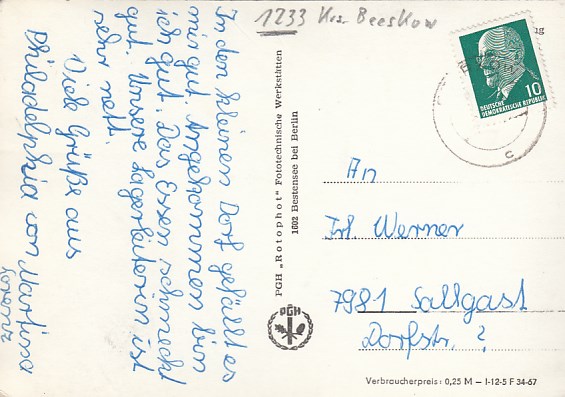 1233 Krs. Beeskow
In den kleinen Dorf gefällt es
mir gut. Angekommen bin
ich gut. Das Essen schmeckt
gut. Unsere Lagerleiterin ist
sehr nett.
Viele Grüße aus
Philadelphia von Martina
PGH „Rotophot" Fototechnische Werkstätten
1602 Bestensee bei Berlin
PGH
10
DEUTSCHE
DEMOKRATISCHE REPUBLIK
c
An
Frl. Werner
7981 Sallgast
Dorfstr. ?
Verbraucherpreis: 0,25 M – I-12-5 F 34-67